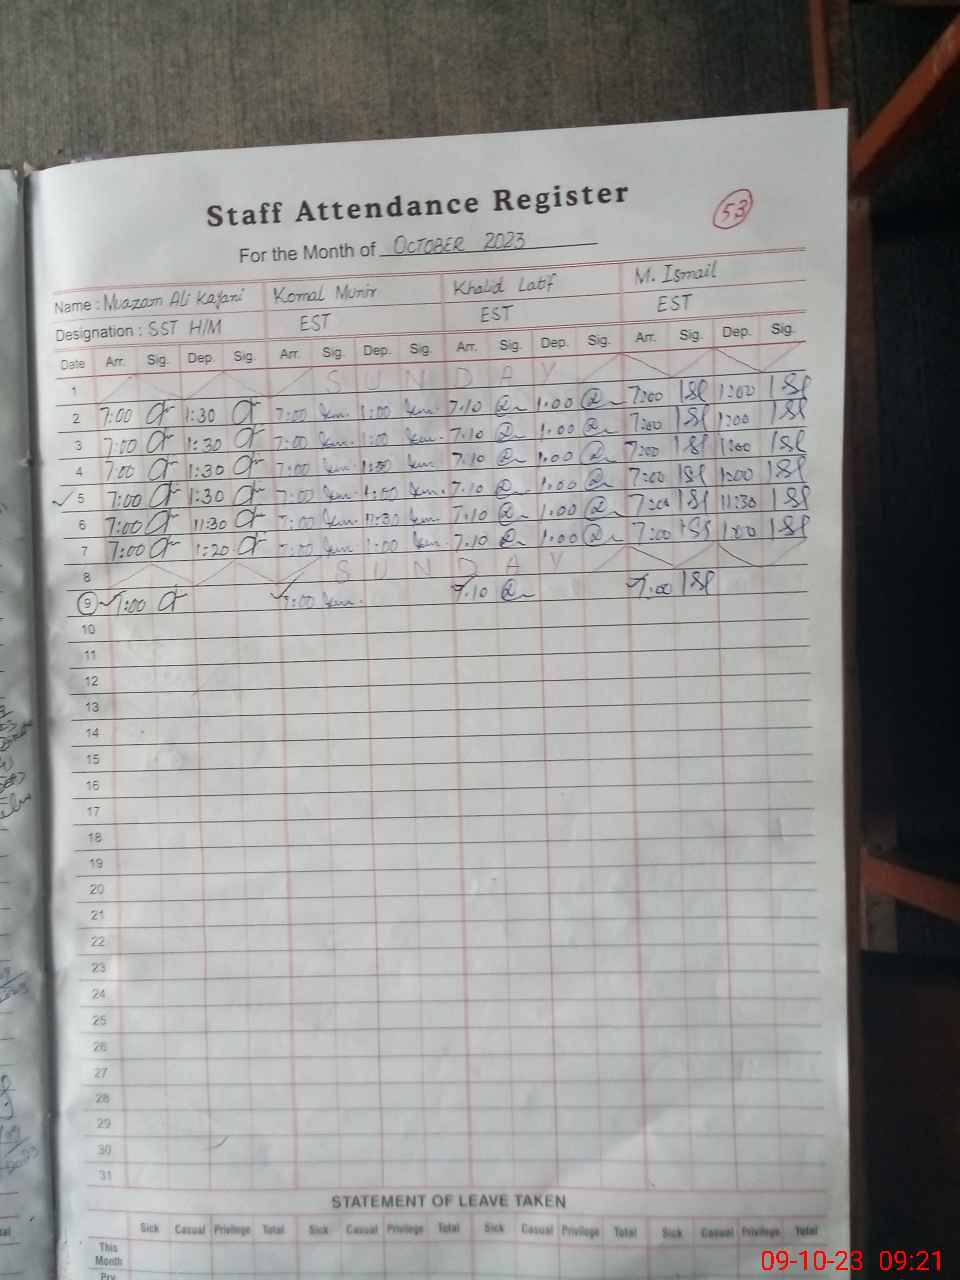 Staff Attendance Register
53
For the Month of OCTOBER 2023
Name : Muazam Ali Kayani Komal Munir Khalid Latif M. Ismail
Designation : SST H/M EST EST EST
Date Arr. Sig. Dep. Sig. Arr. Sig. Dep. Sig. Arr. Sig. Dep. Sig. Arr. Sig. Dep. Sig.
1 SUNDAY
2 7:00 1:30 7:00 1:00 7.10 1.00 7:00 1:00
3 7:00 1:30 7:00 1:00 7.10 1.00 7:00 1:00
4 7:00 1:30 7:00 1:00 7.10 1.00 7:00 1:00
5 7:00 1:30 7:00 1:00 7.10 1.00 7:00 1:00
6 7:00 11:30 7:00 11:30 7.10 1.00 7:00 11:30
7 7:00 1:20 7:00 1:00 7.10 1.00 7:00 1:00
8 SUNDAY
9 7:00 7:00 7.10 7:00
10
11
12
13
14
15
16
17
18
19
20
21
22
23
24
25
26
27
28
29
30
31
STATEMENT OF LEAVE TAKEN
Sick Casual Privilege Total Sick Casual Privilege Total Sick Casual Privilege Total Sick Casual Privilege Total
This
Month
Prv
09-10-23 09:21